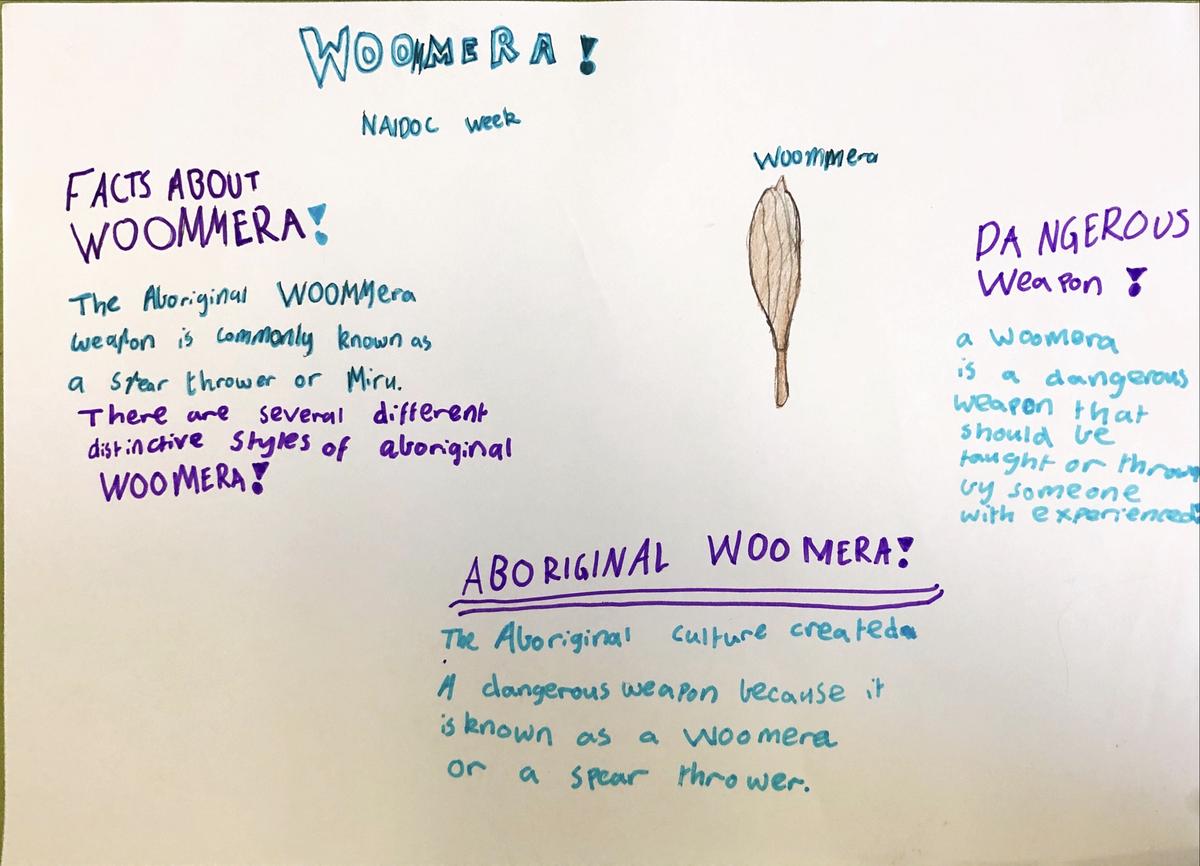 WOOMERA!
NAIDOC week
FACTS ABOUT
WOOMMERA!
The Aboriginal WOOMMera
weapon is commonly known as
a spear thrower or Miru.
There are several different
distinctive styles of aboriginal
WOOMERA!
Woommera
DANGEROUS
Weapon!
a Woomera
is a dangerous
weapon that
should be
taught or thrown
by someone
with experienced
ABORIGINAL WOOMERA!
The Aboriginal culture created a
A dangerous weapon because it
is known as a Woomera
or a spear thrower.